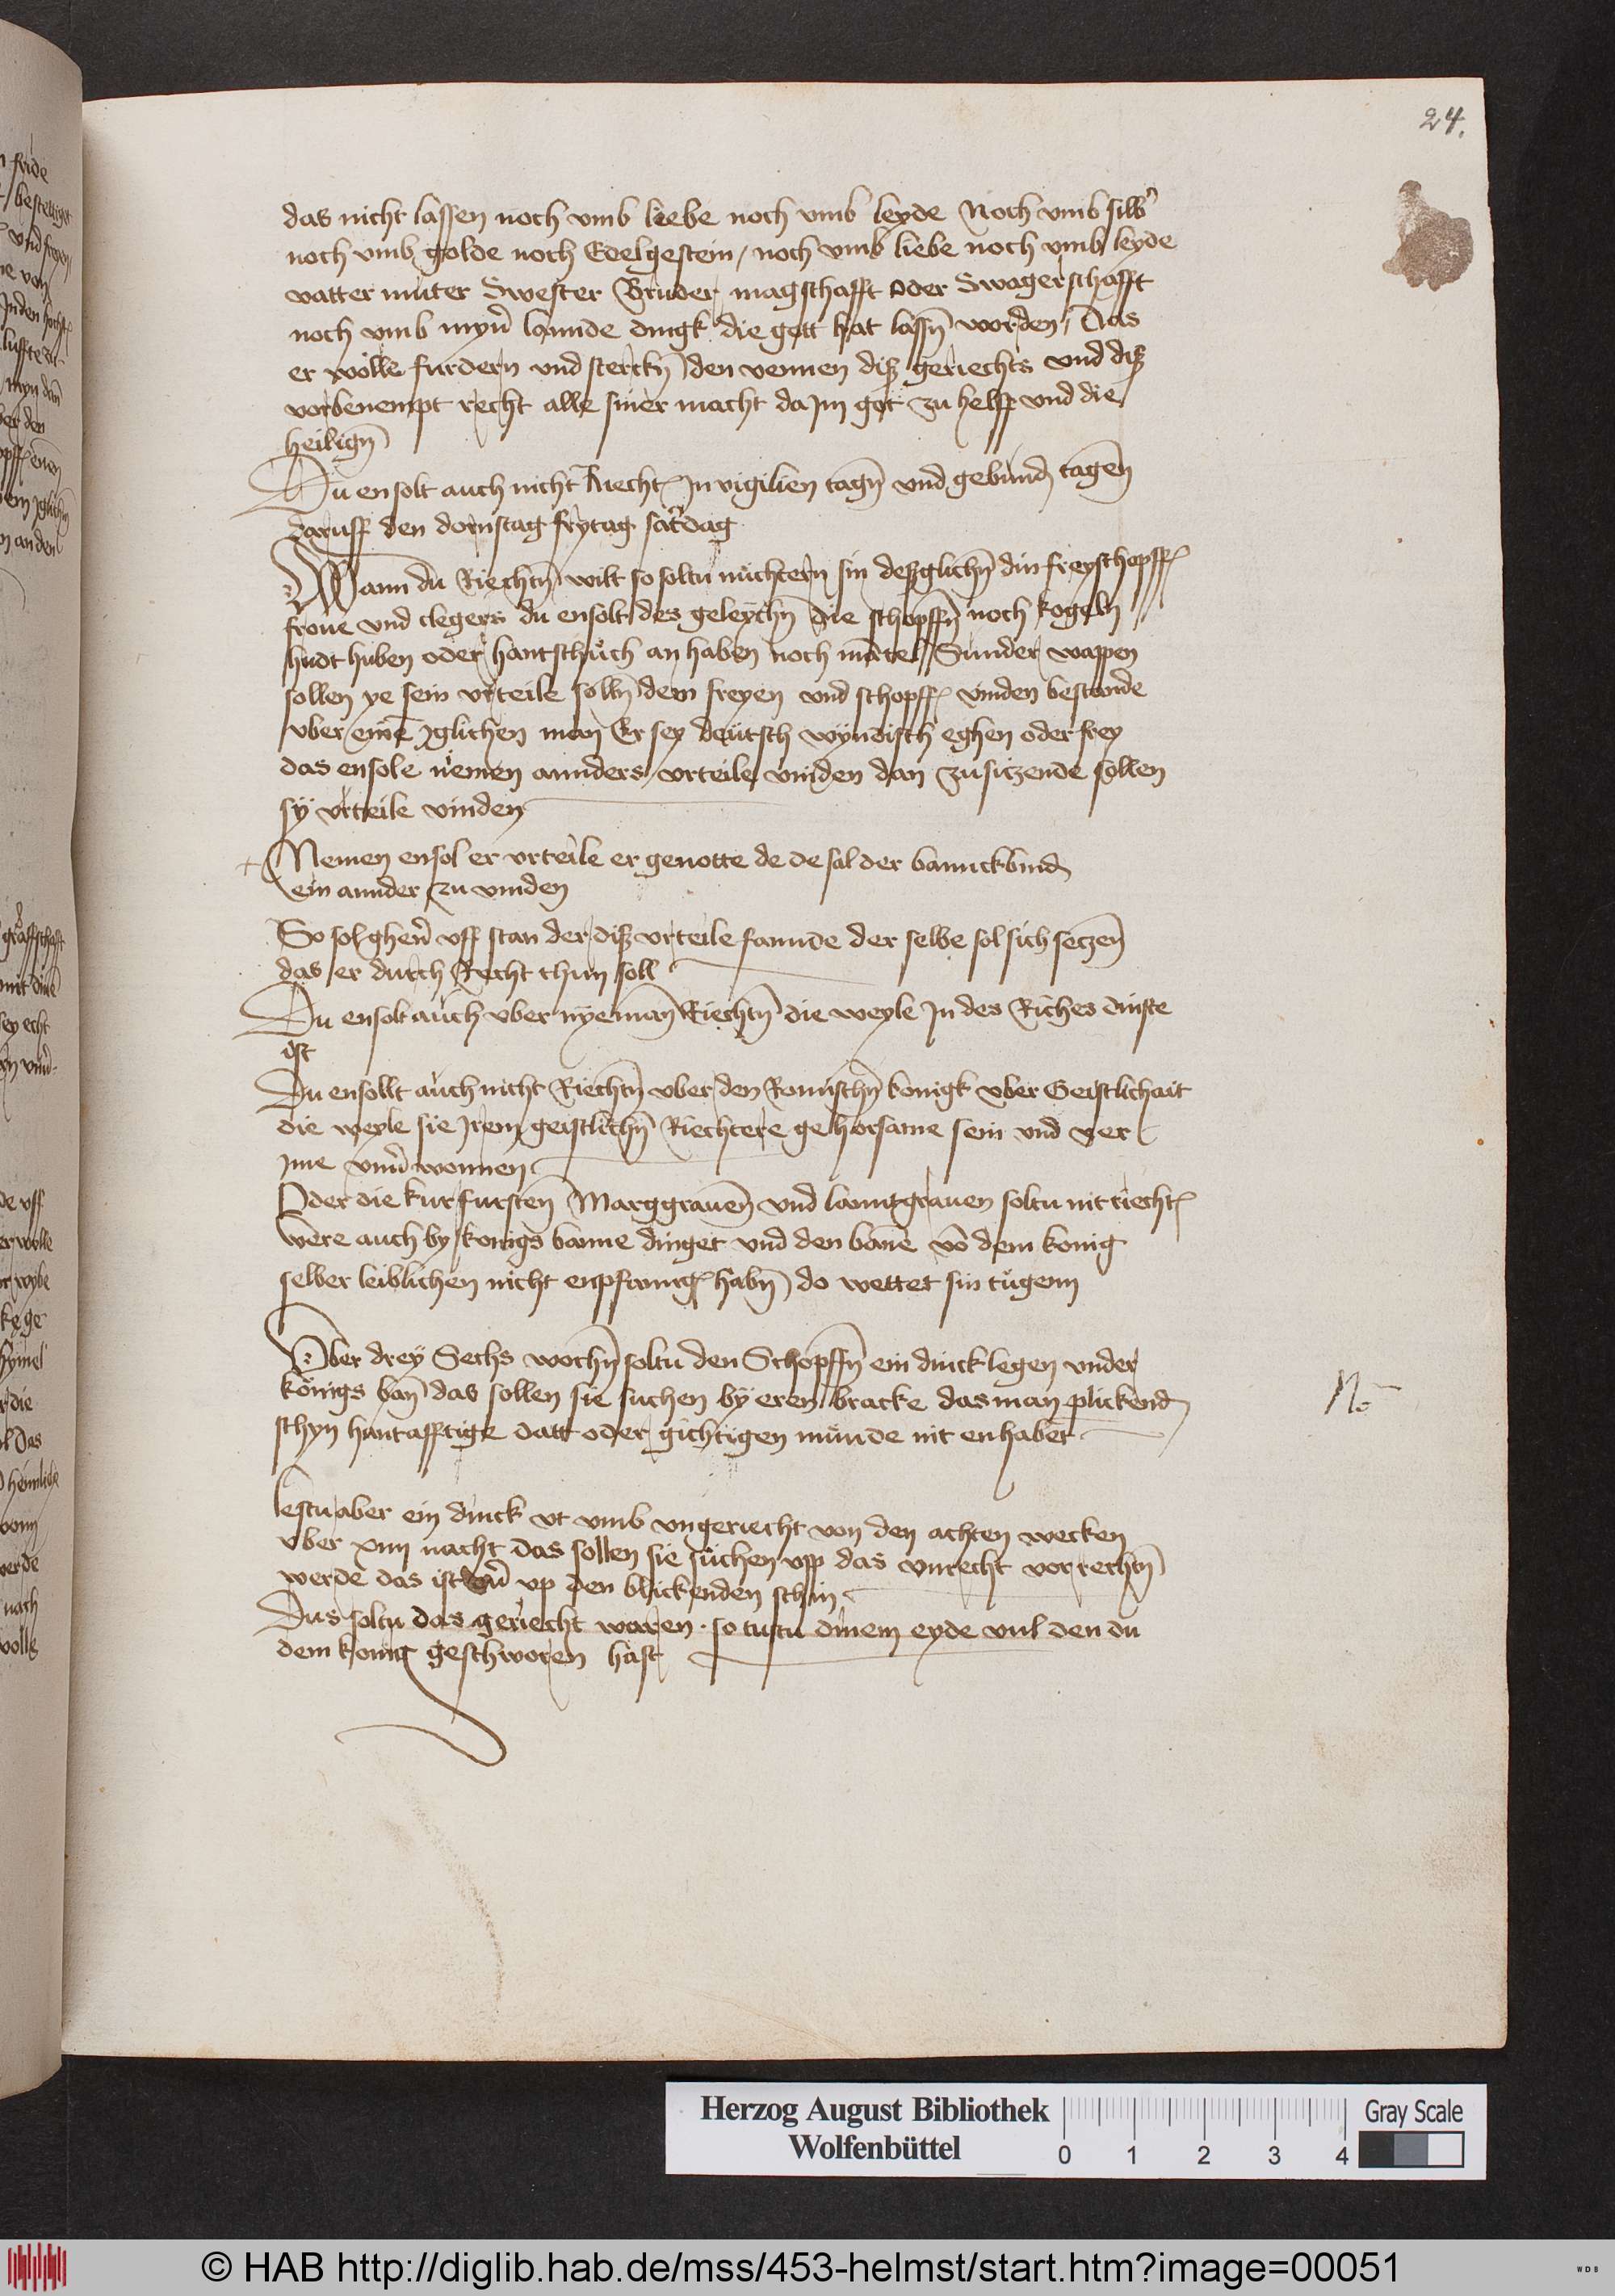 24.
das nicht lassen noch vmb liebe noch vmb leyde Noch vmb silb᷑
noch vmb golde noch Edelgestein / noch vmb liebe noch vmb leyde
vatter muter Swester Bruder magschafft oder Swagerschafft
noch vmb myñ lannde dingk die gott hat lassñ worden / Das
er wölle furdern vnd sterckñ den vennen diß geriechts vnd diß
vorbenempt recht alle siner macht da Jm got zu helff vnd die
heiligñ
Du ensolt auch nicht Riecht Jn vigilien tagñ vnd gebund tagen
daruff den dornstag frytag satdag
Wann du Riechtñ wilt so soltu nüchtern sin deßglichñ din freyschopff
frone vnd clegers du ensolt des geleychñ die schopffñ noch kogeln
hudt huben oder hantschůch an haben noch mātel Sunder wappen
sollen ye sein vrteile sollñ dem freyen vnd schopff vinden bestande
vber eine Jglichen man Er sey deutsch wyndisch eyghen oder frey
das ensole nemen annders vrteile vinden dan zusitzende sollen
sy vrteile vinden
+ Nemen ensol er vrteile er genotte de de sal der banuckbind
ein annder zu vinden
So sol gheñ vff stan der diß vrteile fannde der selbe sol sich seczeñ
das er durch Recht thun soll
Du ensolt auch vber nyeman Riechtñ die weyle Jn des Riches dinste
ist
Du ensollt auch nicht Riechtñ vber den Romischñ konigk vber Geistlichait
die weyle sie Jrem geistlichñ Riechtere gehorsame sein vnd ver
Jme wonnen
Oder die kurfursten Marggrauen vnd lanntgrauen soltu nit riecht
Were auch by konigs banne dinget vnd den bāne vō dem konig
selber leiblichen nicht enpfanng habñ do wettet sin tůgenn
Vber drey Sechs wochñ soltu den Schopffñ ein dinck legen vnder
königs ban das sollen sie suchen by eren bracke das man plickend
schyn hantafftige datt oder gichtigen munde nit en habet
No
lestu aber ein dinck vt vmb vngeriecht von den achten wecken
vber xiiij nacht das sollen sie süchen vpp das vnrecht vorrechtñ
werde das ist vp den blickenden schin
Dus soltu das geriecht waren · so tustu dinem eyde vul den du
dem konig geschworen hast
Herzog August Bibliothek
Wolfenbüttel
0 1 2 3 4
Gray Scale
© HAB http://diglib.hab.de/mss/453-helmst/start.htm?image=00051
WDB